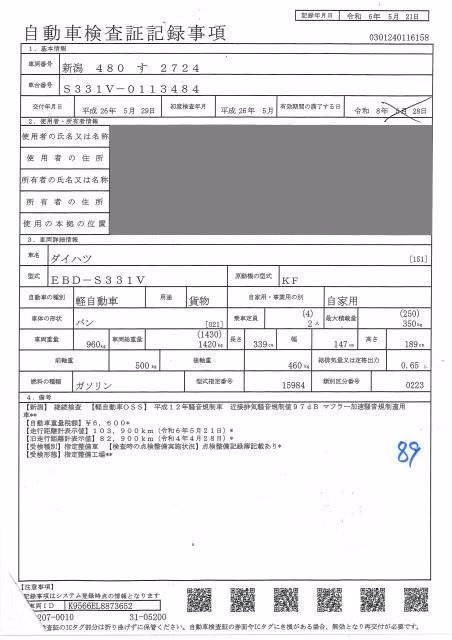 記録年月日 令和 6年 5月 21日
自動車検査証記録事項
0301240116158
1．基本情報
車両番号 新潟 480 す 2724
車台番号 S331V-0113484
交付年月日 平成 26年 5月 29日 初度検査年月 平成 26年 5月 有効期間の満了する日 令和 8年 5月 28日
2．使用者・所有者情報
使用者の氏名又は名称
使用者の住所
所有者の氏名又は名称
所有者の住所
使用の本拠の位置
3．車両詳細情報
車名 ダイハツ [151]
型式 EBD-S331V 原動機の型式 KF
自動車の種別 軽自動車 用途 貨物 自家用・事業用の別 自家用
車体の形状 バン [021] 乗車定員 (4) 2人 最大積載量 (250) 350kg
車両重量 960kg 車両総重量 (1430) 1420kg 長さ 339cm 幅 147cm 高さ 189cm
前軸重 500kg 後軸重 460kg 総排気量又は定格出力 0.65 L
燃料の種類 ガソリン 型式指定番号 15984 類別区分番号 0223
4．備考
【新潟】 継続検査 【軽自動車OSS】 平成12年騒音規制車 近接排気騒音規制値97dB マフラー加速騒音規制適用
車**
【自動車重量税額】¥6,600*
【走行距離計表示値】103,900km（令和6年5月21日）*
【旧走行距離計表示値】82,900km（令和4年4月28日）*
【受検種別】指定整備車 【検査時の点検整備実施状況】点検整備記録簿記載あり*
【受検形態】指定整備工場**
89
【注意事項】
記録事項はシステム登録時点の情報となります
車両ID K9566EL8873652
207-0010 31-05200
検査証のICタグ部分は折り曲げずに保管ください。自動車検査証の券面やICタグに含まれる損傷がある場合、無効となり再交付が必要です。